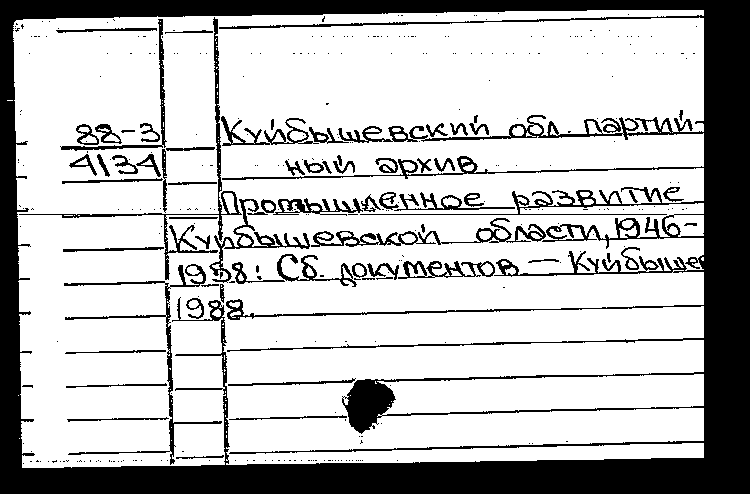 88-3 Куйбышевский обл. партий-
4134 ный архив.
Промышленное развитие
Куйбышевской области, 1946-
1958: Сб. документов. — Куйбышев
1988.